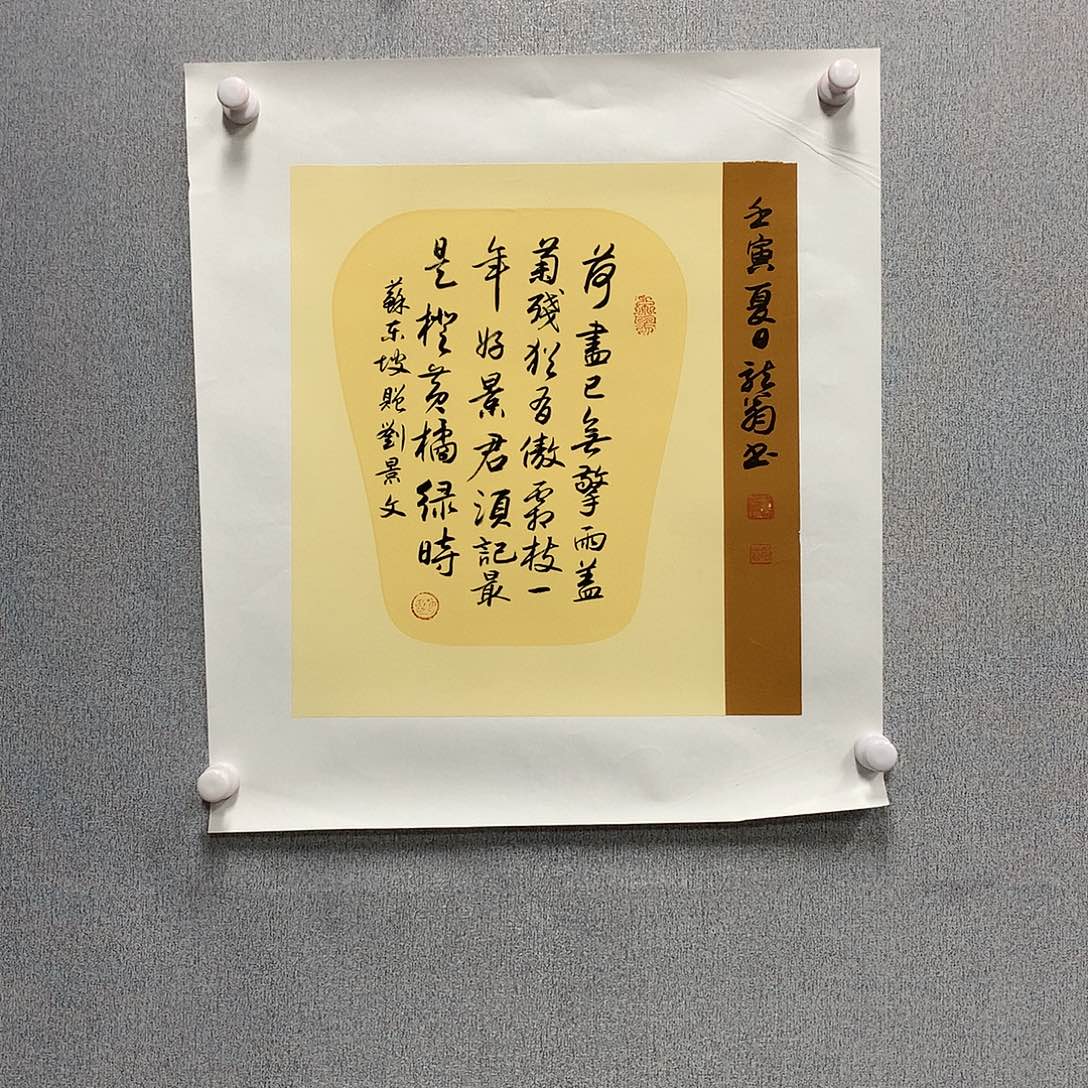 荷盡已無擎雨盖
菊殘猶有傲霜枝一
年好景君須記最
是橙黄橘绿時
蘇东坡贈劉景文
壬寅夏日龍翁书